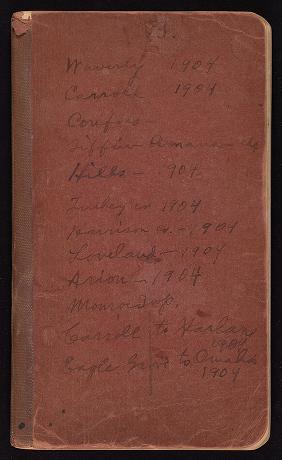 Waverly 1904
Carroll 1904
Conifers -
Tiffin Amana
Hills - 1904
Turkey 1904
Harrison Co. - 1904
Loveland - 1904
Arion - 1904
Monroe
Carroll to Harlan
1904
Eagle Grove to Omaha
1904